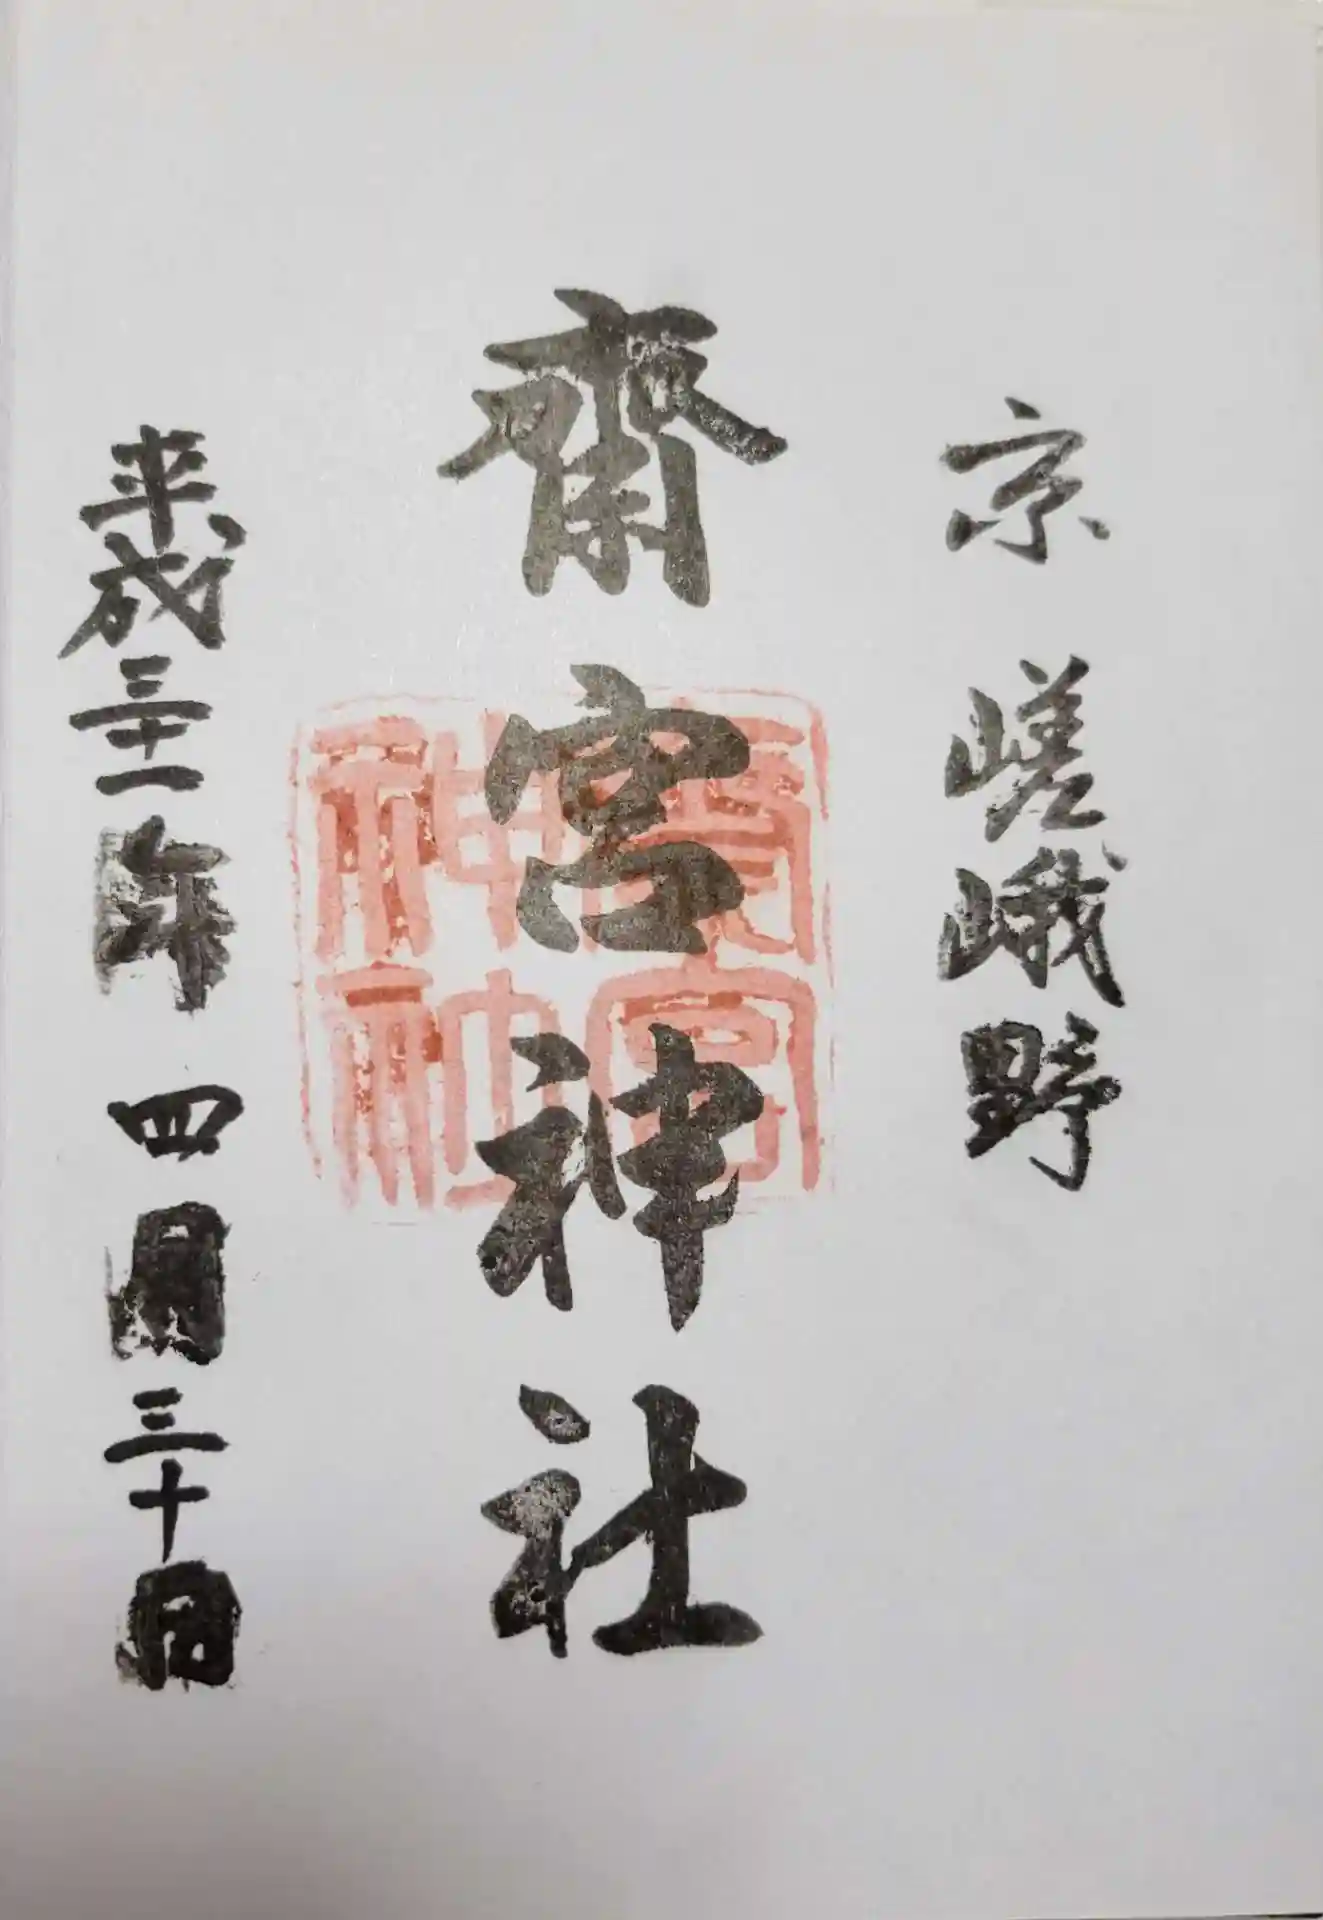 京 嵯峨野
齋宮神社
齋宮神社
平成三十一年 四月三十日